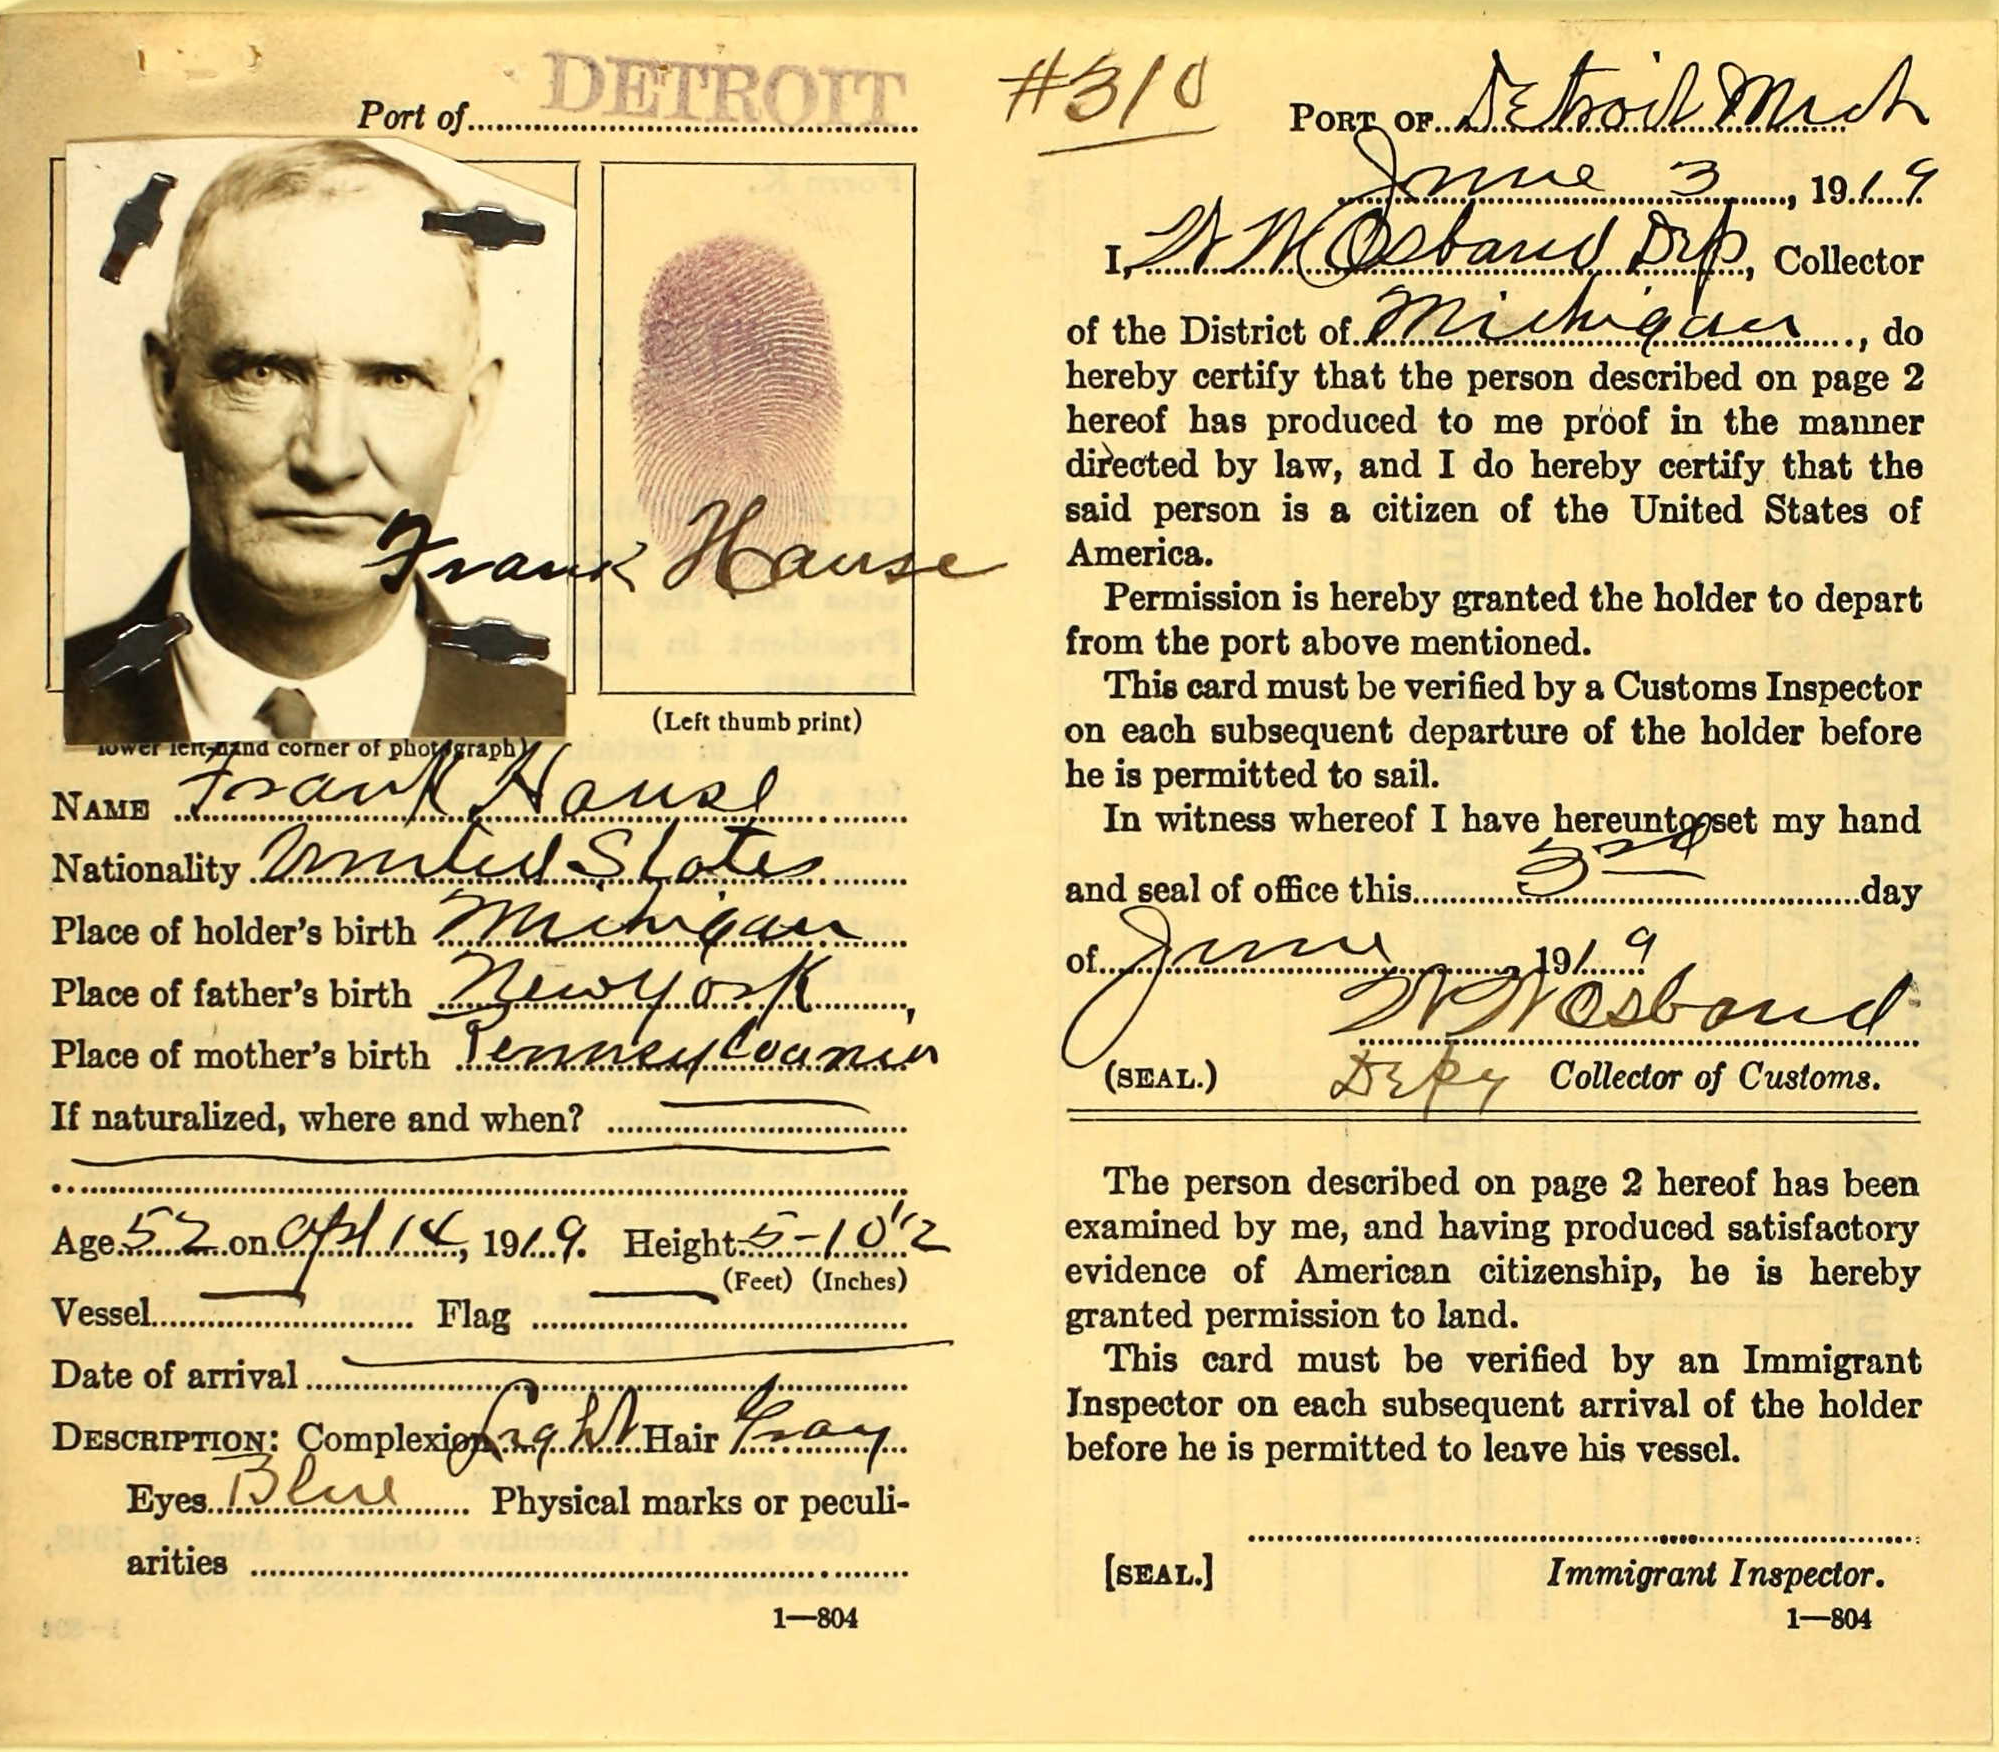 Port of DETROIT
Frank Hause
(Left thumb print)
lower left-hand corner of photograph)
NAME Frank Hause
Nationality United States
Place of holder's birth Michigan
Place of father's birth New York,
Place of mother's birth Pennsylvania
If naturalized, where and when?
Age 52 on Apl 14, 1919. Height 5-10 1/2
(Feet) (Inches)
Vessel Flag
Date of arrival
DESCRIPTION: Complexion Light Hair Gray
Eyes Blue Physical marks or peculi-
arities
1—804
#310
PORT OF Detroit Mich
June 3, 1919
I, W M Osband Dep, Collector
of the District of Michigan, do
hereby certify that the person described on page 2
hereof has produced to me proof in the manner
directed by law, and I do hereby certify that the
said person is a citizen of the United States of
America.
Permission is hereby granted the holder to depart
from the port above mentioned.
This card must be verified by a Customs Inspector
on each subsequent departure of the holder before
he is permitted to sail.
In witness whereof I have hereunto set my hand
and seal of office this 3rd day
of June 1919
Osband
(SEAL.) Depy Collector of Customs.
The person described on page 2 hereof has been
examined by me, and having produced satisfactory
evidence of American citizenship, he is hereby
granted permission to land.
This card must be verified by an Immigrant
Inspector on each subsequent arrival of the holder
before he is permitted to leave his vessel.
[SEAL.] Immigrant Inspector.
1—804